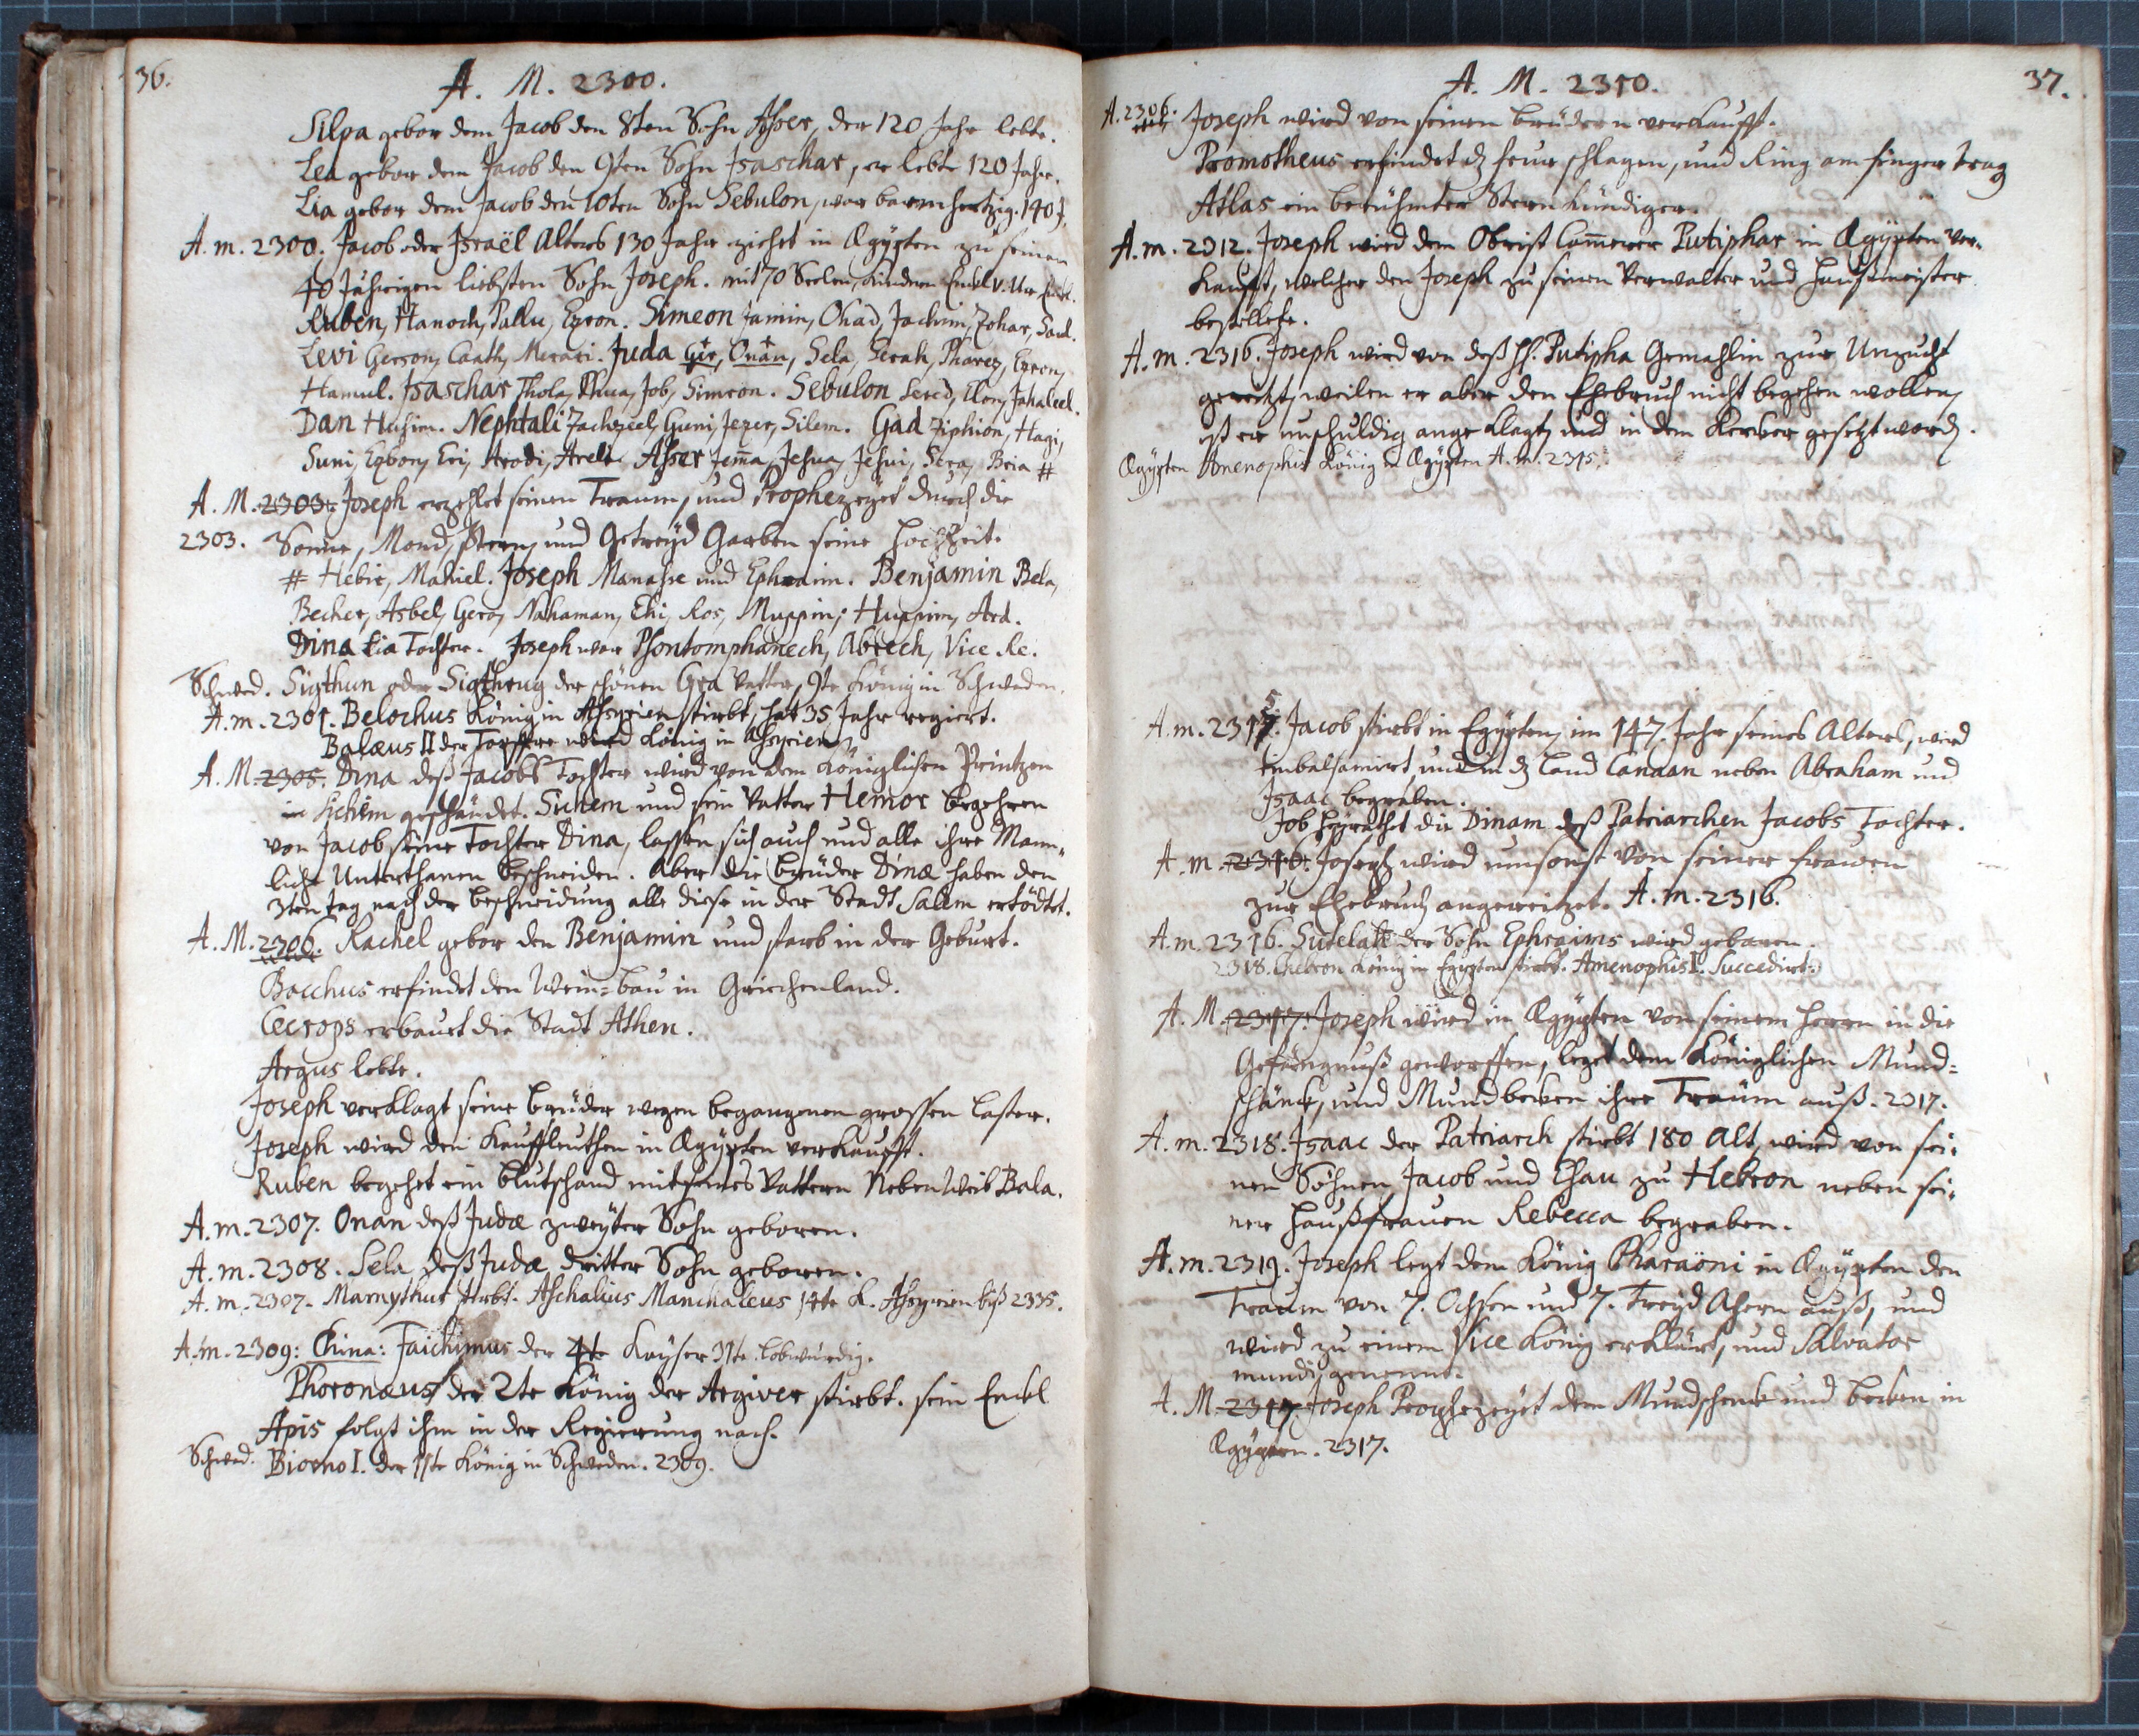 36.
A. M. 2300.
Silpa gebar dem Jacob den 8ten Sohn Asser, der 120 Jahr lebte.
Lea gebar dem Jacob den 9ten Sohn Isaschar, er lebte 120 Jahr.
Lia gebar dem Jacob den 10ten Sohn Sebulon, war barmhertzig. 140 J.
A. m. 2300. Jacob oder Israël Alters 130 Jahr ziehet in Ægypten zu seinem
40 Jährigen liebsten Sohn Joseph. mit 70 Seelen, Kindern Enckel
Ruben, Hanoch, Pallu, Ezron. Simeon Jamin, Ohad, Jachim, Zohar, Saul.
Levi Gerson, Caath, Merari. Juda Ger, Onan, Sela, Serah, Pharez, Ezron,
Hamul. Isaschar Thola, Phua, Job, Simron. Sebulon Sered, Elon, Jahaleel.
Dan Husim. Nephtali Jachzeel, Guni, Jezer, Silem. Gad Ziphion, Hagi,
Suni, Ezbon, Eri, Arodi, Areli. Asser Jemna, Jesua, Jesui, Sera, Bria #
A. M. 2303. Joseph erzehlet seinen Traum, und Prophezeyet durch die
2303. Sonne, Mond, Stern, und Getreyd Garben seine Hochheit.
# Hebir, Malriel. Joseph Manasse und Ephraim. Benjamin Bela,
Becher, Asbel, Gera, Nahaman, Ehi, Ros, Muppim, Huppim, Ard.
Dina Lia Tochter. Joseph war Psontomphanech, Abrech, Vice Re.
Schwed. Sigthun oder Sigtheug der schönen Gra Vatter, 9te König in Schweden.
A. m. 2304. Belochus König in Assyrien stirbt, hat 35 Jahr regiert.
Balæus II der Tapffere wird König in Assyrien
A. M. 2305. Dina deß Jacobs Tochter wird von dem Königlichen Printzen
in Sichem geschändet. Sichem und sein Vatter Hemor begehren
von Jacob seine Tochter Dina, lassen sich auch und alle ihre Mann-
liche Unterthanen beschneiden. Aber die Brüder Dinæ haben den
3ten tag nach der beschneidung alle diese in der Stadt Salem ertödtet.
A. M. 2306. Rachel gebar den Benjamin und starb in der Geburt.
Bacchus erfindet den Wein-bau in Griechenland.
Cecrops erbauet die Stadt Athen.
Argus lebte.
Joseph verklagt seine Brüder wegen begangenen grossen laster.
Joseph wird den Kauffleuthen in Ægypten verkaufft.
Ruben begehet ein Blutschand mit seines Vattern Neben Weib Bala.
A. m. 2307. Onan deß Judæ zweyter Sohn geboren.
A. m. 2308. Sela deß Judæ dritter Sohn geboren.
A. m. 2307. Mamythus stirbt. Aschalius Manchaleus 14te K. Assyrien biß 2335.
A. m. 2309: China: Faichimus der 4te Kayser lobwürdig.
Phoronæus der 2te König der Argiver stirbt. sein Enckel
Apis folgt ihm in der Regierung nach.
Schwed. Biorno I. der König in Schweden. 2309.
A. M. 2310.
37.
A. 2306. Joseph wird von seinen Brüdern verkaufft.
Promotheus erfindet dz feur schlagen, und Ring am finger trag
Atlas ein berühmter Stern Kündiger.
A. m. 2312. Joseph wird dem Obrist Cammerer Putiphar in Ægypten ver-
kaufft, welcher den Joseph zu seinen Verwalter und Haußmeister
bestellete.
A. m. 2316. Joseph wird von deß H. Putipha Gemahlin zur Unzucht
gereitzt, weilen er aber den Ehebruch nicht begehen wollen,
ist er unschuldig angeklagt, und in den Kerker gesetzt word.
Ægypten Amenophis König in Ægypten A. m. 2315.
A. m. 2315. Jacob stirbt in Egypten, im 147. Jahr seines Alters, wird
einbalsamirt und in dz land Canaan neben Abraham und
Isaac begraben.
Job heyrathet die Dinam deß Patriarchen Jacobs Tochter.
A. m. 2316. Joseph wird umsonst von seiner frauen
zur Ehebruch angereitzet. A. m. 2316.
A. m. 2316. Sutelah der Sohn Ephraims wird geboren.
2318. Chebron König in Egypten stirbt. Amenophis I. Succedirt.
A. M. 2317. Joseph wird in Ægypten von seinem Herrn in die
Gefängnuß geworffen, leget dem Königlichen Mund-
schänck, und Mundbecken ihre Träum auß. 2317.
A. m. 2318. Isaac der Patriarch stirbt 180 Alt, wird von sei-
nen Söhnen Jacob und Esau zu Hebron neben sei-
ner Haußfrauen Rebecca begraben.
A. m. 2319. Joseph legt dem König Pharaoni in Ægypten den
Traum von 7. Ochsen und 7. Treyd Ahern auß, und
wird zu einem Vice König erklärt, und Salvator
mundi genennt.
A. M. 2317. Joseph Prophezeyet dem Mundschenck und becken in
Ægypten. 2317.